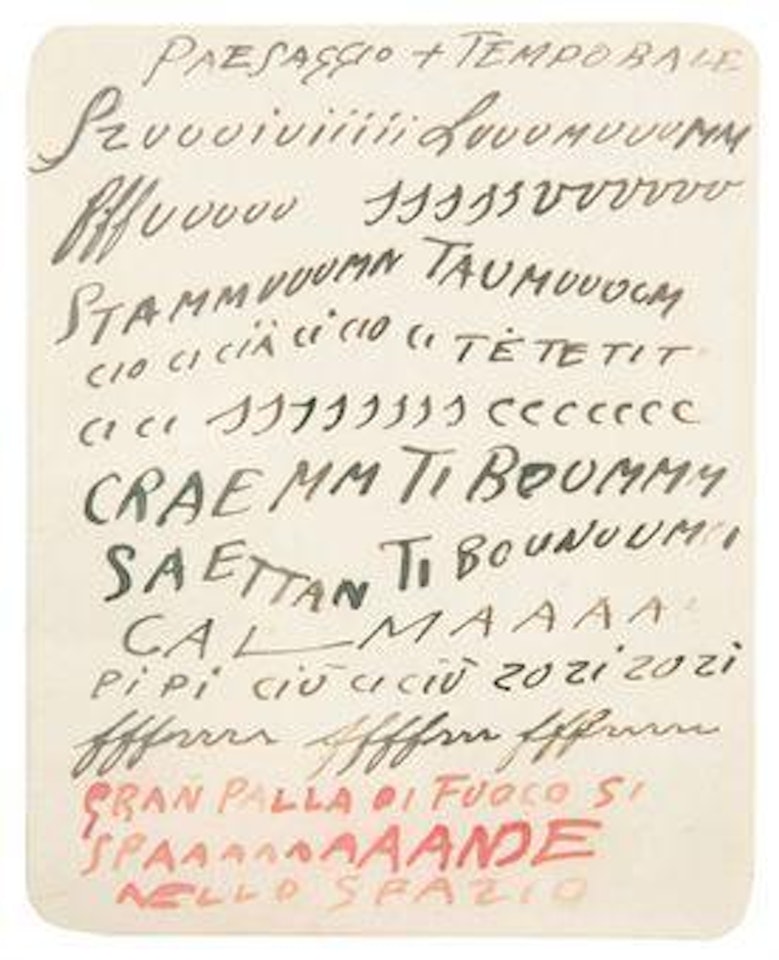 PAESAGGIO + TEMPORALE
Szuuuiuiiiiii Luuumuuuumm
Pffuuuuu ssssssvuuuuuu
STAMMUUUMN TAUMUUUOM
CIO CI CIÄ CI CIO CI TÈTETIT
CI CI sssssssss cccccccc
CRAEMM TI BOUMMM
SAETTAN TI BOUNUUM
CALMAAAAA
PiPi CIŪ CICIŪ ZOZI ZOZI
fffrrrr fffffrrr fffrrrrr
GRAN PALLA DI FUOCO SI
SPAAAAAAAANDE
NELLO SPAZIO